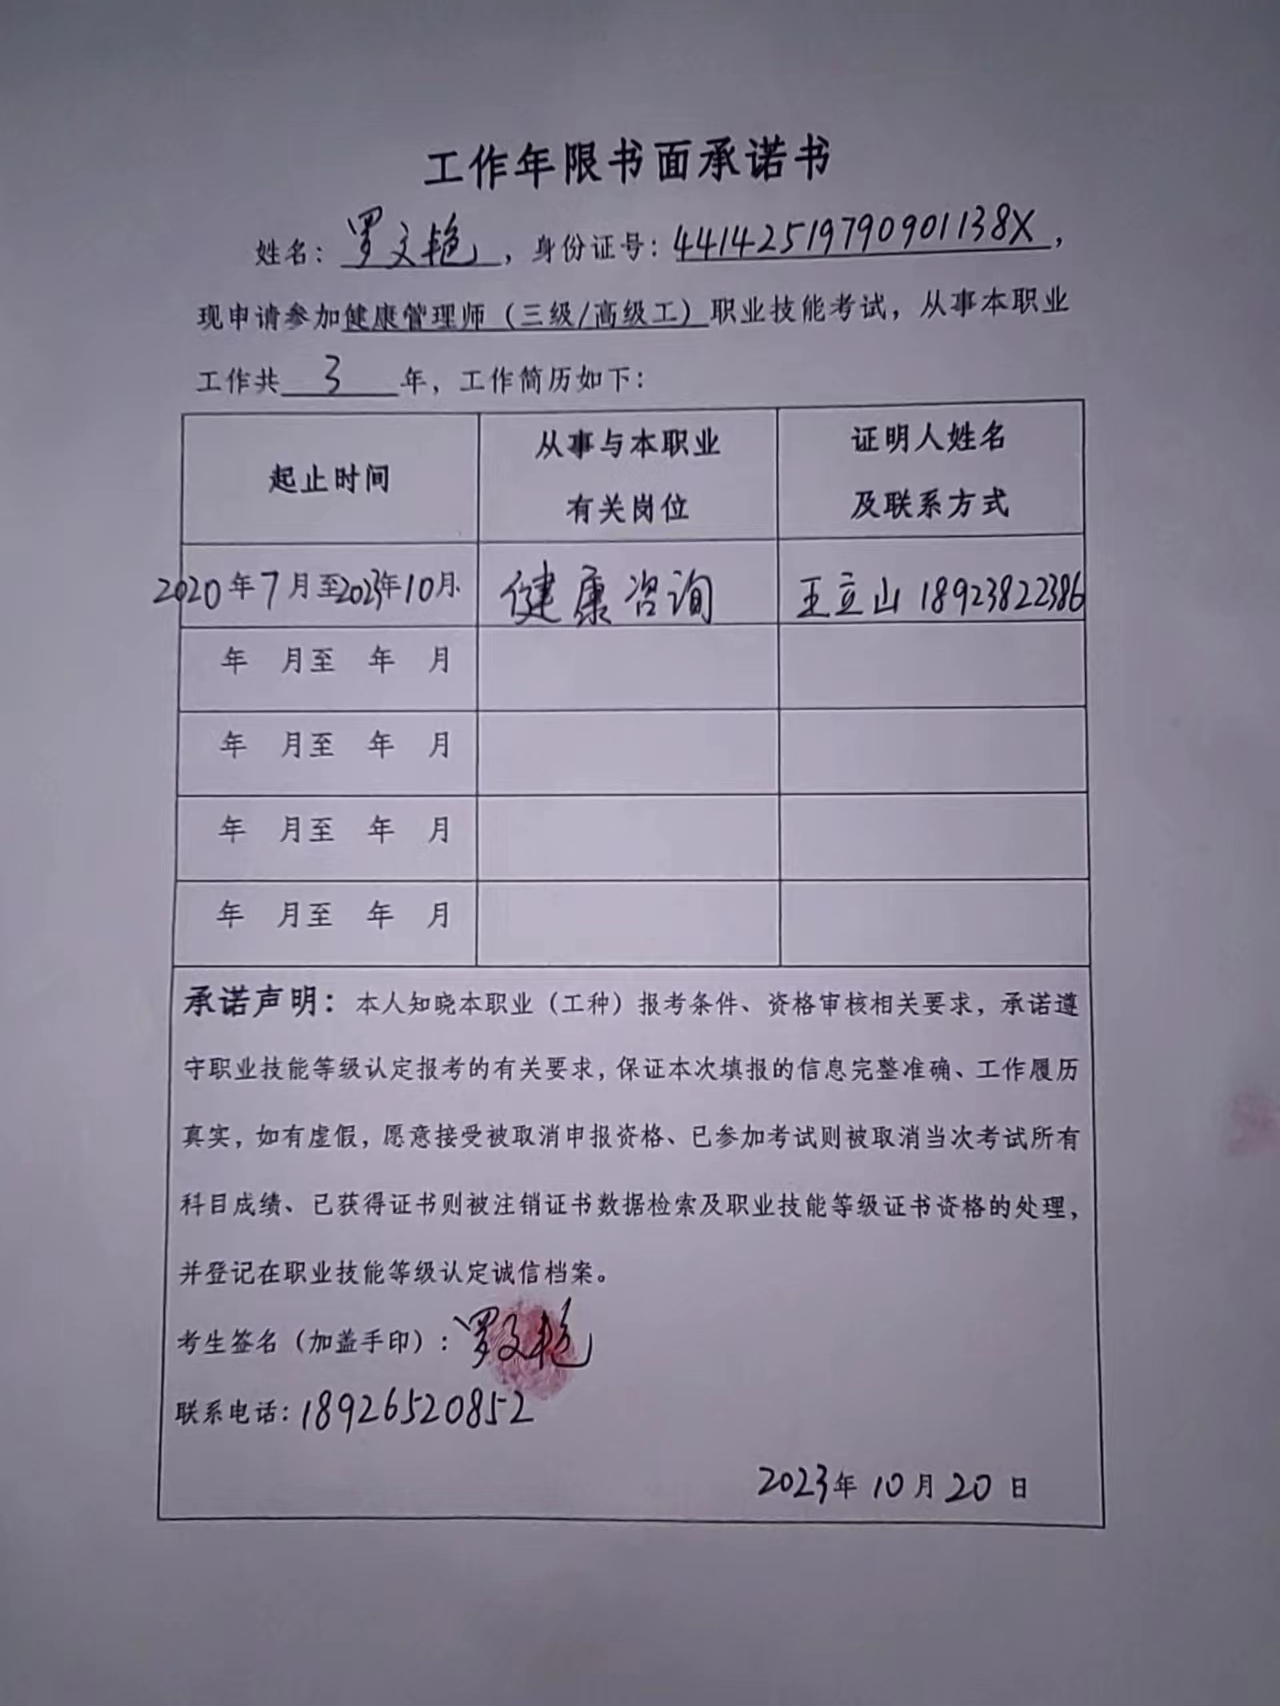 工作年限书面承诺书
姓名：罗文艳，身份证号：44142519790901138X，
现申请参加健康管理师（三级/高级工）职业技能考试，从事本职业
工作共3年，工作简历如下：
起止时间
从事与本职业
有关岗位
证明人姓名
及联系方式
2020年7月至2023年10月
健康咨询
王立山 18923822386
年 月至 年 月
年 月至 年 月
年 月至 年 月
年 月至 年 月
承诺声明：本人知晓本职业（工种）报考条件、资格审核相关要求，承诺遵
守职业技能等级认定报考的有关要求，保证本次填报的信息完整准确、工作履历
真实，如有虚假，愿意接受被取消申报资格、已参加考试则被取消当次考试所有
科目成绩、已获得证书则被注销证书数据检索及职业技能等级证书资格的处理，
并登记在职业技能等级认定诚信档案。
考生签名（加盖手印）：罗文艳
联系电话：18926520852
2023年10月20日